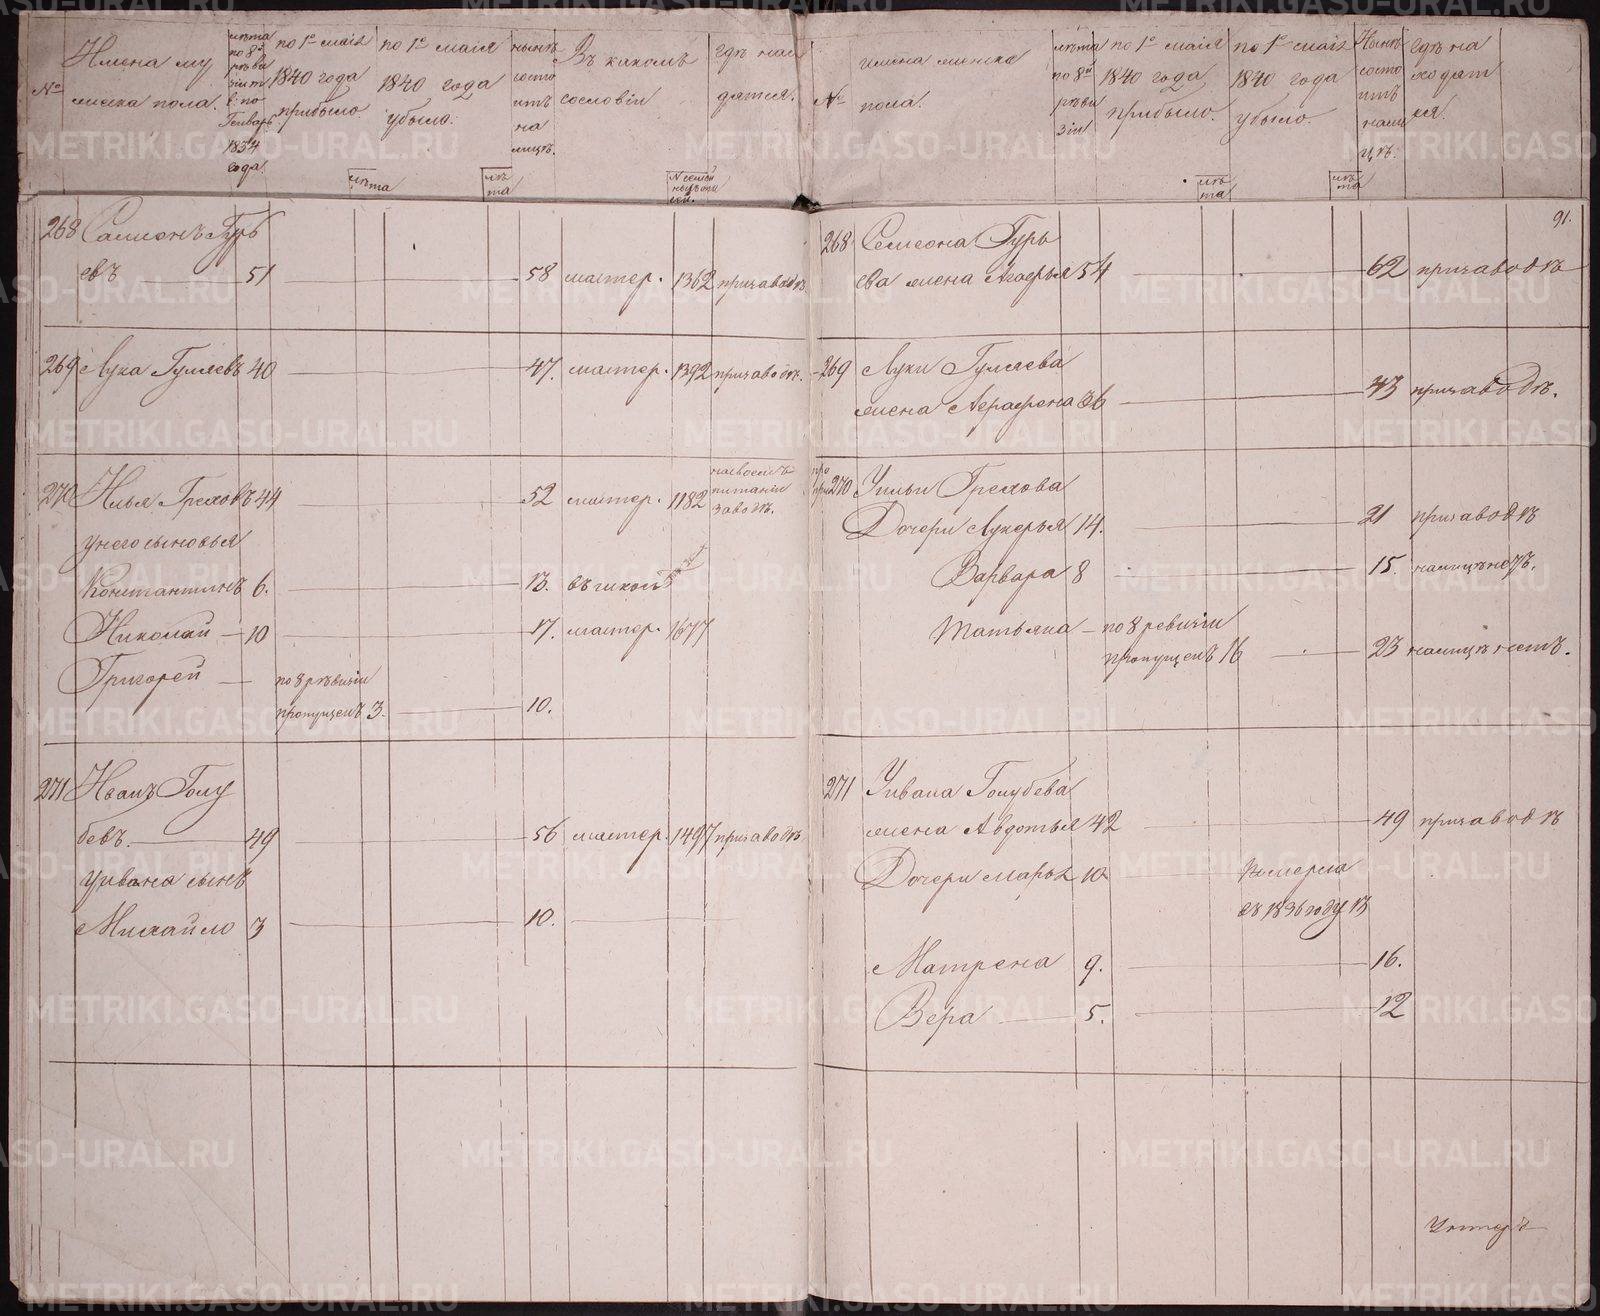 №
Имена му
жеска пола.
лѣта
по 8й
реви
зiи
по
Генварь
1834
года
по 1е маiя
1840 года
прибыло.
лѣта
по 1е маiя
1840 года
убыло.
лѣ
та
нынѣ
состо
итъ
на
лицѣ.
Въ какомъ
сословiи
№ семей
гдѣ нахо
дятся.
268 Самионъ Гурь
евъ 51 58 мастер. 1362 призаводѣ
269 Лука Гуляевъ 40 47. мастер. 1392 призаводѣ.
270 Илья Греховъ 44 52 мастер. 1182
питанiи
заводѣ.
унего сыновья
Константинъ 6. 13. въ школѣ
Николай 10 17. мастер. 1677
Григорей по 8 рѣвизiи
пропущенъ 3. 10.
271 Иванъ Голу
бевъ. 49 56 мастер. 1497 призаводѣ
уивана сынъ
Михайло 3 10.
№
имена женска
пола.
лѣта
по 8й
рѣви
зiи
по 1е маiя
1840 года
прибыло.
лѣ
та
по 1е маiя
1840 года
убыло.
лѣ
та
Нынѣ
состо
итъ
нали
цѣ.
гдѣ на
ходят
ся.
91.
268 Семиона Гурь
ева жена Агафья 54 62 призаводѣ
269 Луки Гуляева
жена Аграфена 36 43 призаводѣ.
270 Уильи Грехова
Дочери Лукерья 14. 21 призаводѣ
Варвара 8 15.
Татьяна по 8 ревизiи
пропущенъ 16 23 налицѣ нетъ.
271 Уивана Голубева
жена Авдотья 42 49 призаводѣ
Дочери Марья 10 померла
въ 1836 году 13
Матрена 9. 16.
Вера 5. 12